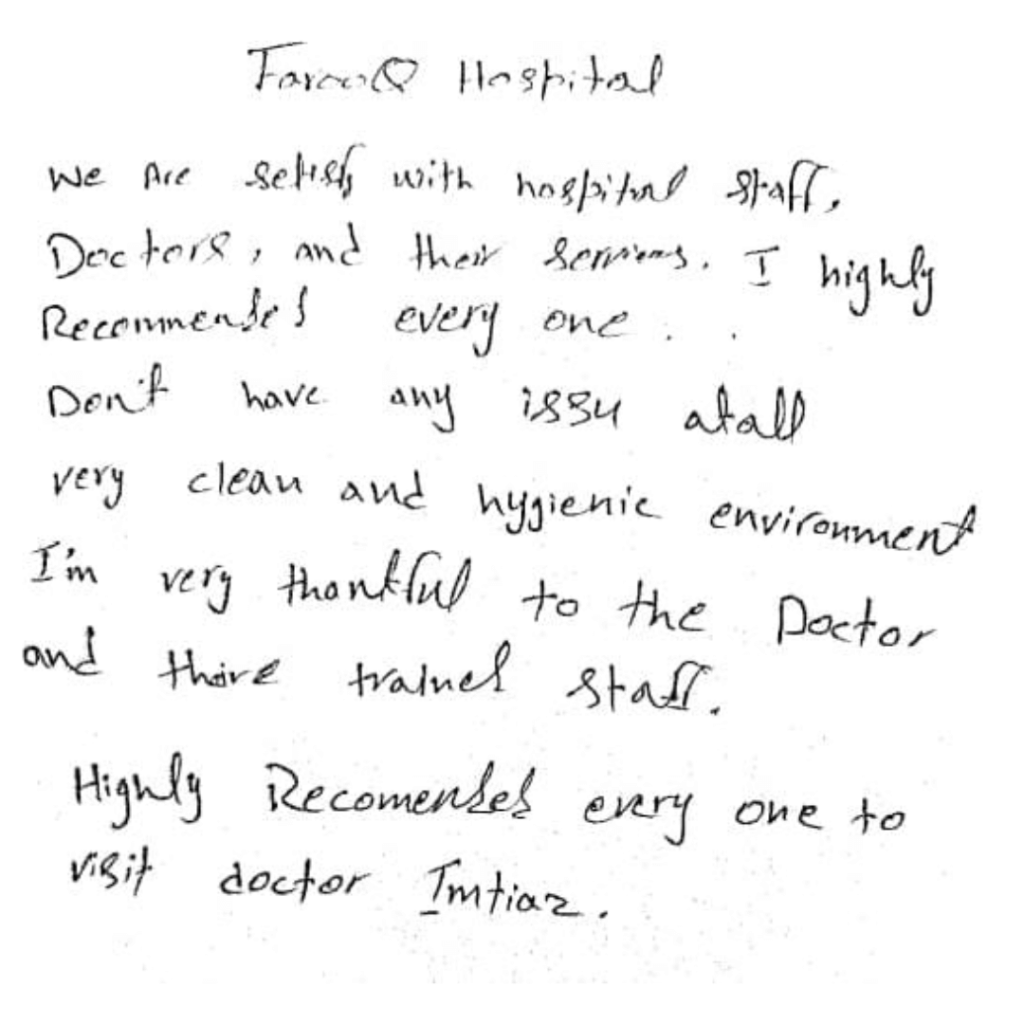 FarooQ Hospital
We Are setisfy with hospital staff,
Doctors, and their services. I highly
Recommended every one.
Don't have any issu atall
very clean and hygienic environment
I'm very thankful to the Doctor
and thire trained staff.
Highly Recomended every one to
visit doctor Imtiaz.